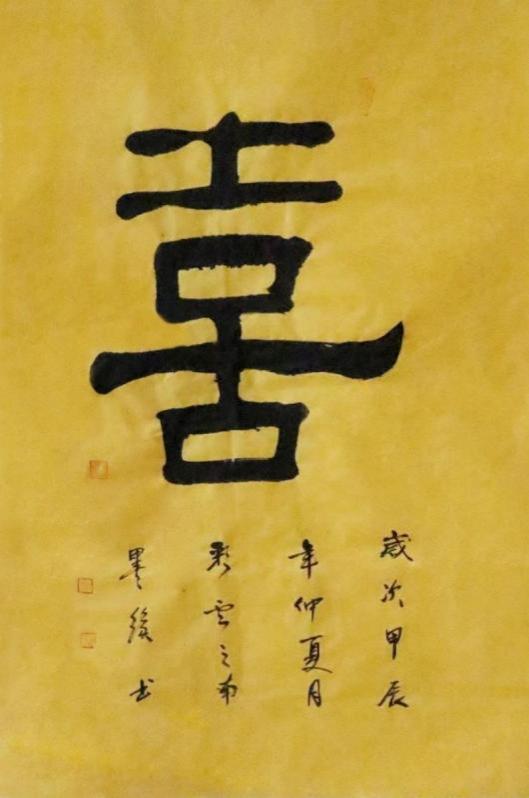 喜
歲次甲辰
年仲夏月
彩云之南
墨 书